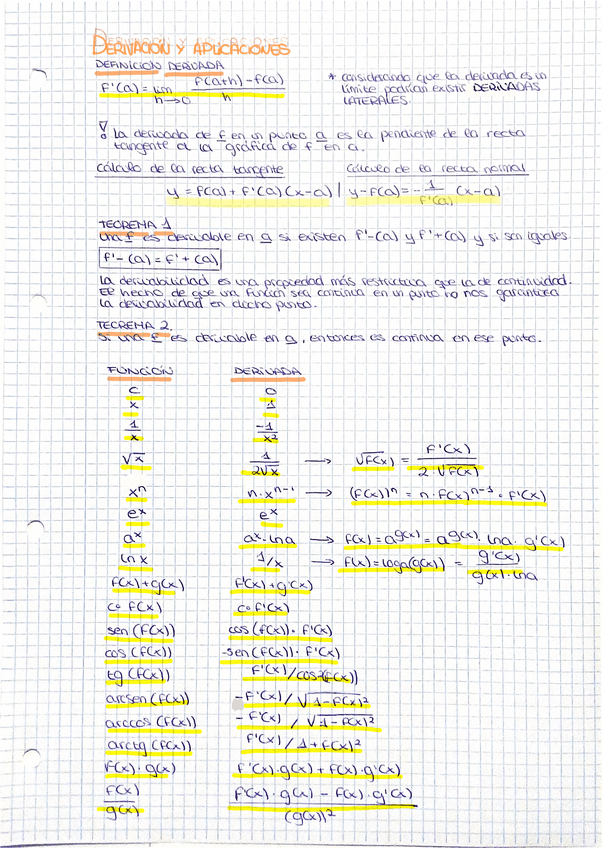 DERIVACIÓN Y APLICACIONES
DEFINICIÓN DERIVADA
f'(a) = lim h→0 f(a+h) - f(a) / h
* considerando que la derivada es un
límite podrían existir DERIVADAS
LATERALES.
! La derivada de f en un punto a es la pendiente de la recta
tangente a la gráfica de f en a.
Cálculo de la recta tangente
Cálculo de la recta normal
y = f(a) + f'(a) (x-a) | y - f(a) = - 1/f'(a) (x-a)
TEOREMA 1
Una f es derivable en a si existen f'-(a) y f'+(a) y si son iguales.
f'-(a) = f'+(a)
La derivabilidad es una propiedad más restrictiva que la de continuidad.
El hecho de que una función sea continua en un punto no nos garantiza
la derivabilidad en dicho punto.
TEOREMA 2.
Si una f es derivable en a, entonces es continua en ese punto.
FUNCIÓN DERIVADA
c 0
x 1
1/x -1/x²
√x 1/2√x → √f(x) = f'(x) / 2·√f(x)
xⁿ n·xⁿ⁻¹ → (f(x))ⁿ = n·f(x)ⁿ⁻¹·f'(x)
eˣ eˣ
aˣ aˣ·lna → f(x) = a^g(x) = a^g(x)·lna·g'(x)
lnx 1/x → f(x) = loga(g(x)) = g'(x) / g(x)·lna
f(x)+g(x) f'(x)+g'(x)
c·f(x) c·f'(x)
sen(f(x)) cos(f(x))·f'(x)
cos(f(x)) -sen(f(x))·f'(x)
tg(f(x)) f'(x)/cos²(f(x))
arcsen(f(x)) -f'(x) / √1-f(x)²
arccos(f(x)) -f'(x) / √1-f(x)²
arctg(f(x)) f'(x) / 1+f(x)²
f(x)·g(x) f'(x)·g(x) + f(x)·g'(x)
f(x)/g(x) f'(x)·g(x) - f(x)·g'(x) / (g(x))²